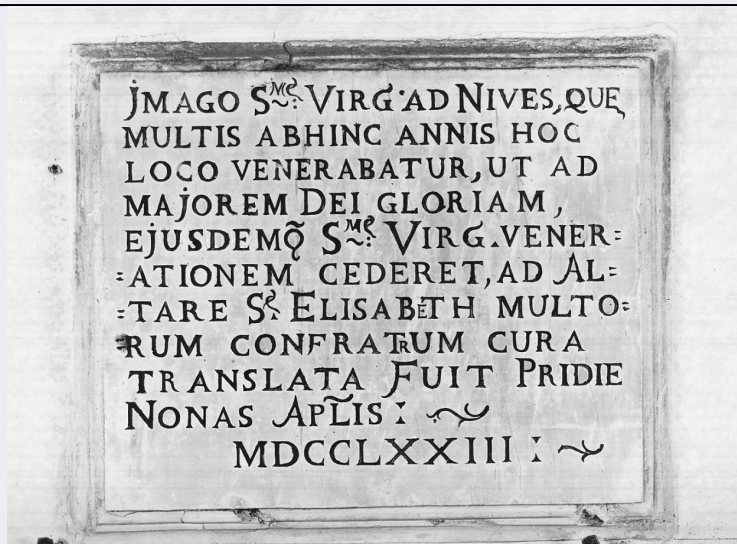 JMAGO Sᵐᵉ: VIRG· AD NIVES, QUE
MULTIS ABHINC ANNIS HOC
LOCO VENERABATUR, UT AD
MAJOREM DEI GLORIAM,
EJUSDEMQ̃ Sᵐᵉ: VIRG. VENER=
=ATIONEM CEDERET, AD AL=
=TARE Sᵉ. ELISABETH MULTO=
=RUM CONFRATRUM CURA
TRANSLATA FUIT PRIDIE
NONAS APL̃IS:
MDCCLXXIII: